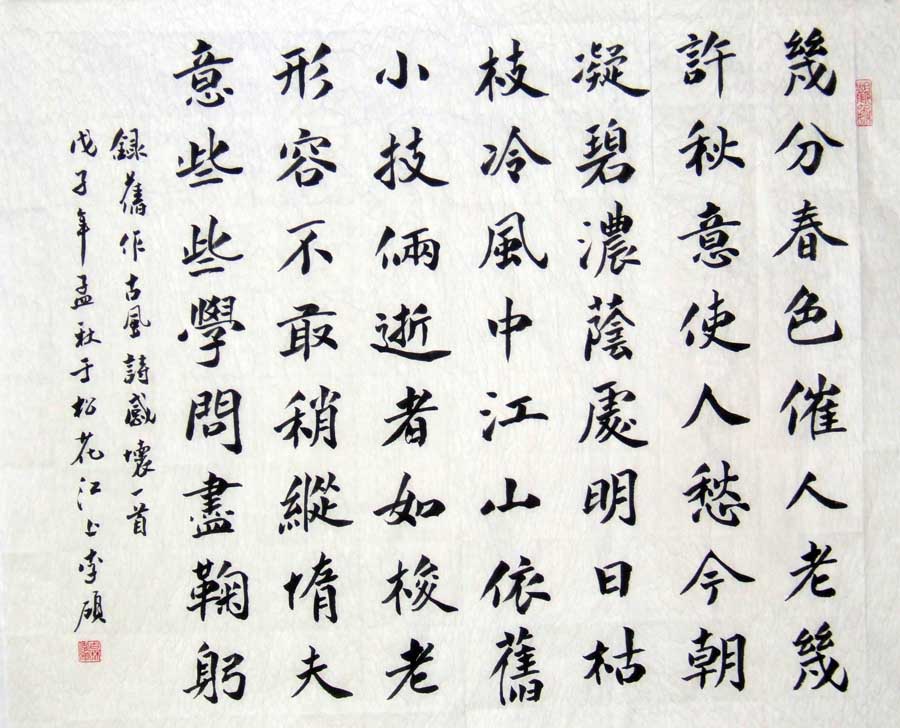 幾分春色催人老幾
許秋意使人愁今朝
凝碧濃蔭處明日枯
枝冷風中江山依舊
小技倆逝者如梭老
形容不敢稍縱惰夫
意些些學問盡鞠躬
錄舊作古風詩感壞一首
戊子年孟秋于松花江上李碩